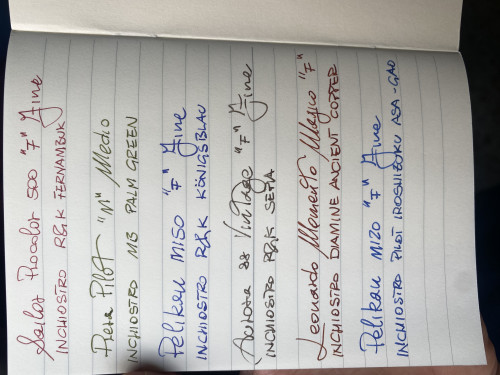 Sailor Procolor 500 "F" Fine
INCHIOSTRO R&K FERNAMBUK
Pilot "M" Medio
INCHIOSTRO MB PALM GREEN
Pelikan M150 "F" Fine
INCHIOSTRO R&K KÖNIGSBLAU
Aurora 88 Vintage "F" Fine
INCHIOSTRO R&K SEPIA
Leonardo Momento Magico "F"
INCHIOSTRO DIAMINE ANCIENT COPPER
Pelikan M120 "F" Fine
INCHIOSTRO PILOT IROSHIZUKU ASA-GAO